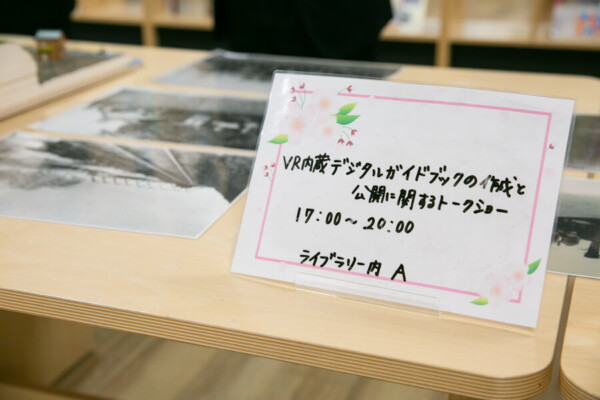 VR内蔵デジタルガイドブックの作成と
公開に関するトークショー
17:00〜20:00
ライブラリー内 A